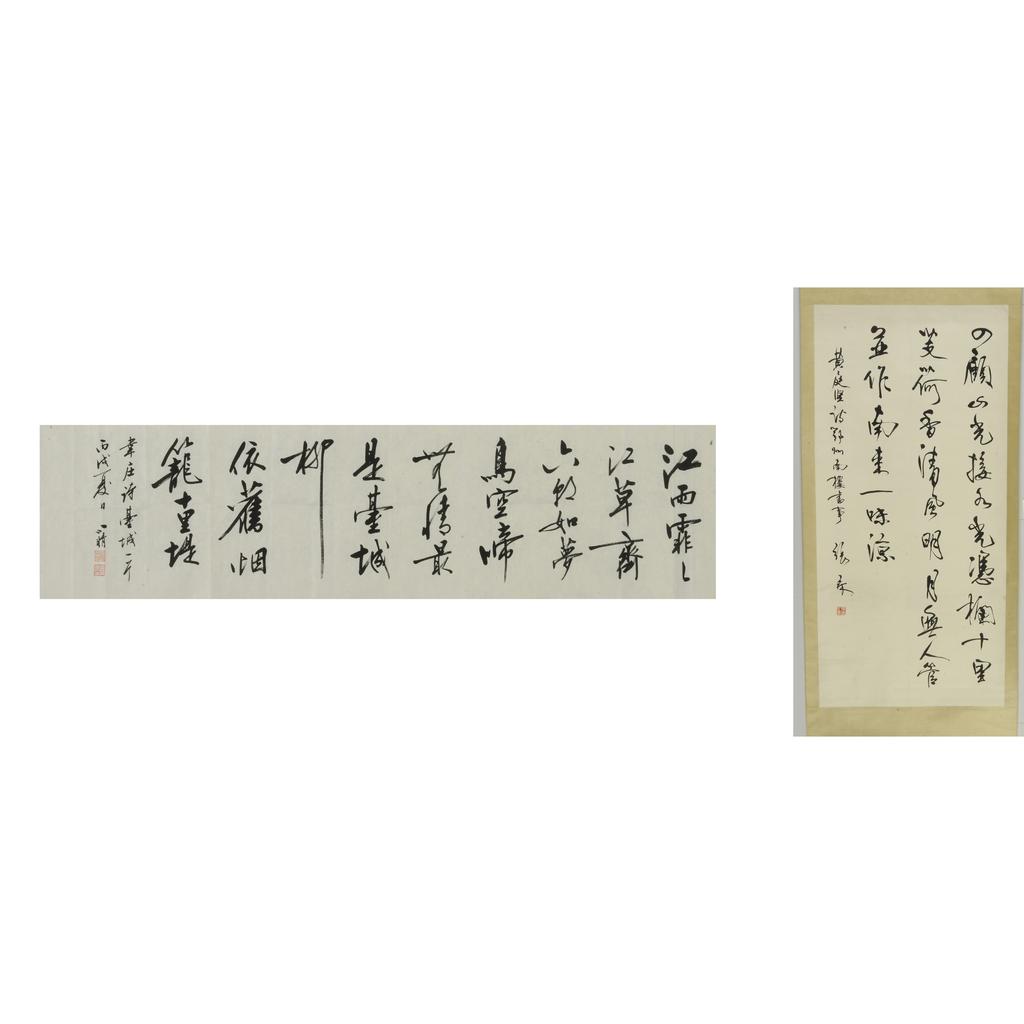 江雨霏〻
江草齊
六朝如夢
鳥空啼
無情最
是臺城
柳
依舊烟
籠十里堤
韋庄诗臺城一首
丙戌夏日
四顧山光接水光憑欄十里
芰荷香清風明月無人管
並作南來一味涼
黃庭堅诗鄂州南樓書事 張